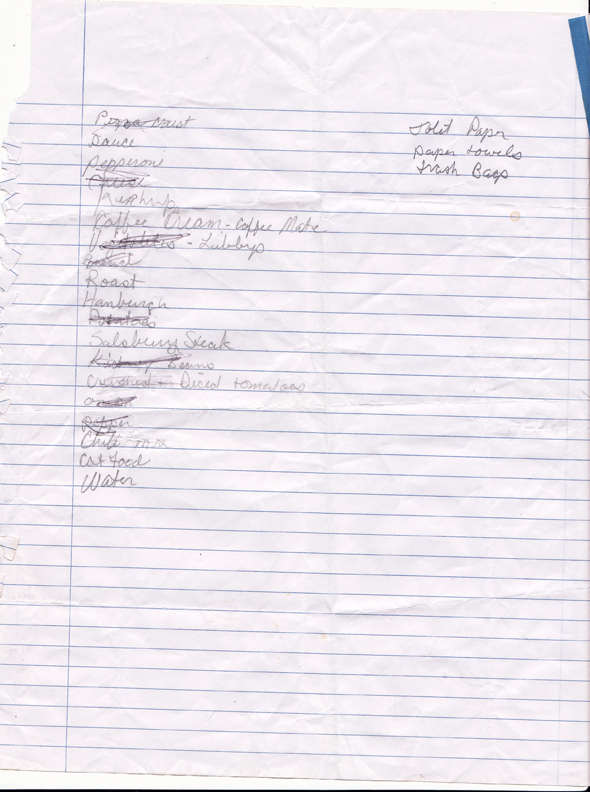 Pizza crust
Sauce
pepperoni
Cheese
Kuphup
Coffee Cream - Coffee Mate
Vegetables - Libbys
Roast
Hamburgh
Potatoes
Salsburry Steak
Kidney Beans
Crushed - Diced tomatoes
onion
pepper
Chili mix
Cat Food
Water
Tolit Paper
paper towels
trash Bags